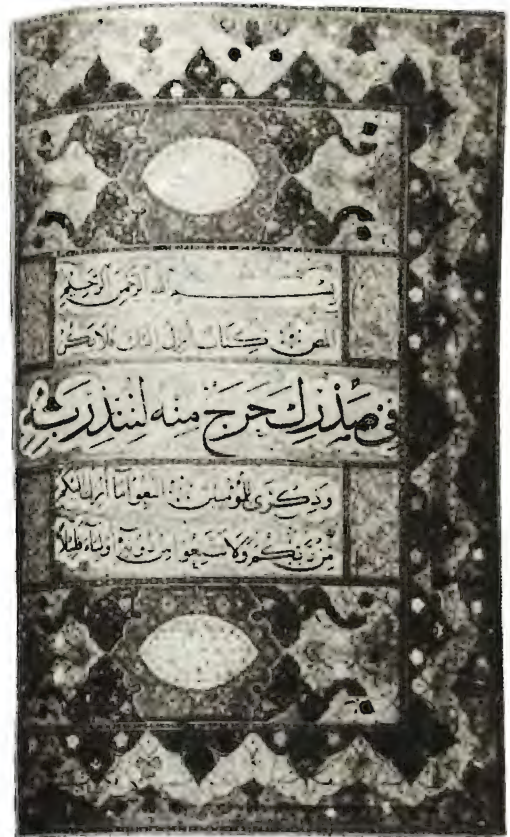 بِسْمِ اللهِ الرَّحْمٰنِ الرَّحِيْمِ
المص كِتَابٌ أُنْزِلَ إِلَيْكَ فَلَا يَكُنْ
فِي صَدْرِكَ حَرَجٌ مِنْهُ لِتُنْذِرَ بِهِ
وَذِكْرَى لِلْمُؤْمِنِينَ اتَّبِعُوا مَا أُنْزِلَ إِلَيْكُمْ
مِنْ رَبِّكُمْ وَلَا تَتَّبِعُوا مِنْ دُونِهِ أَوْلِيَاءَ قَلِيلًا